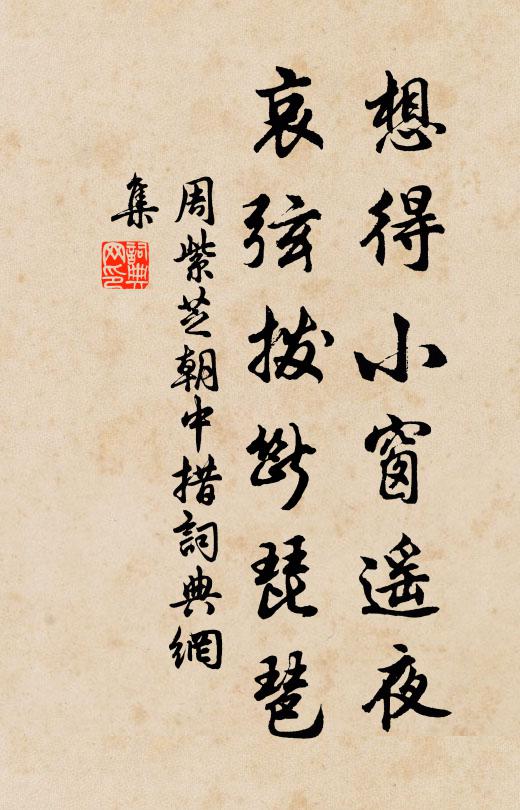 想得小窗遥夜
哀弦拨断琵琶
周紫芝朝中措詞典網
集
詞典网印